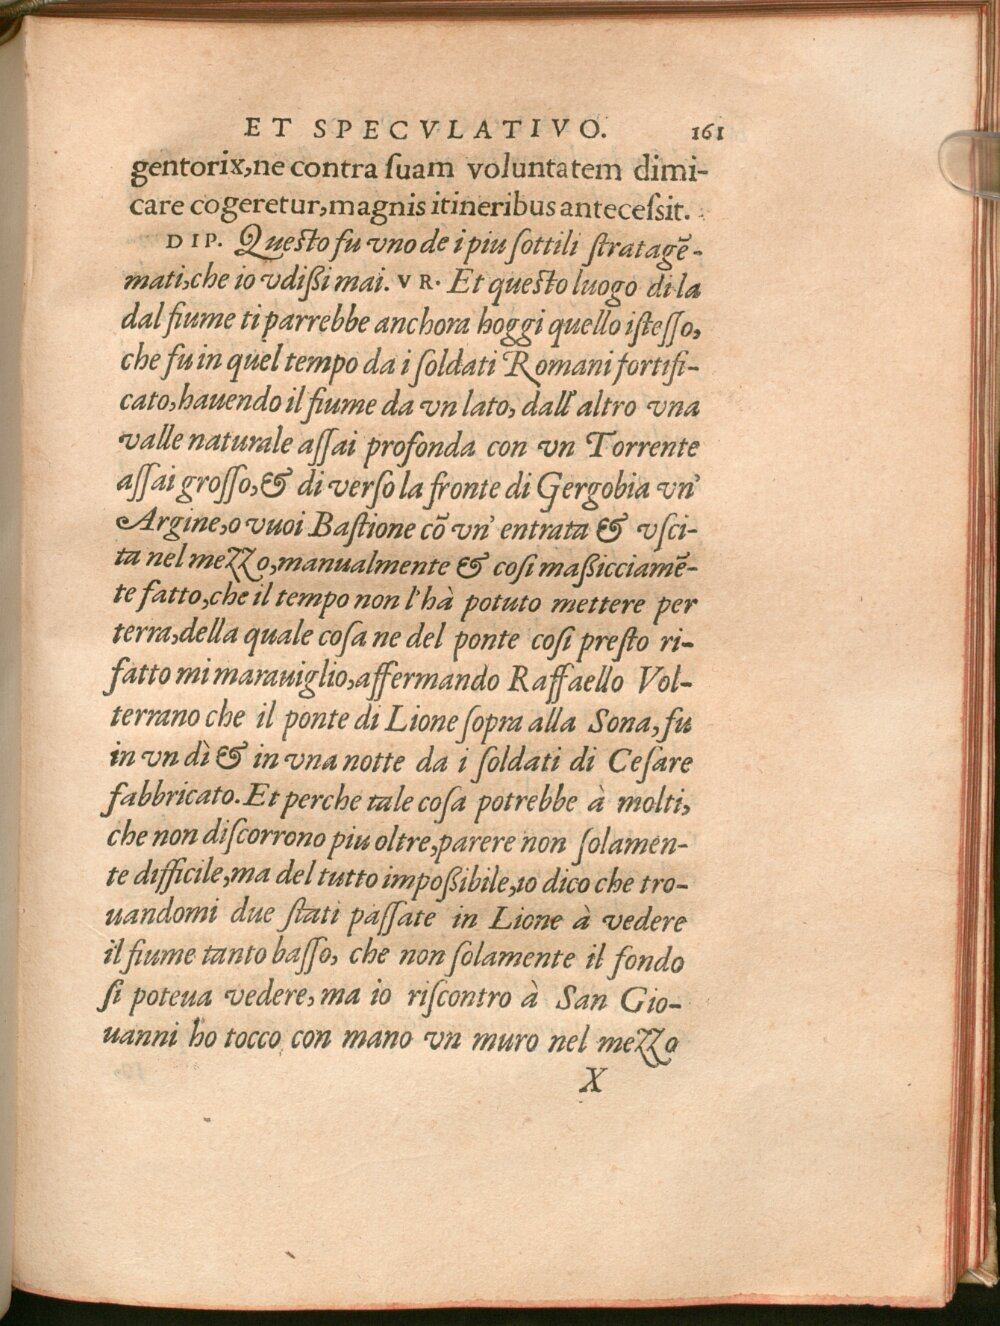 ET SPECVLATIVO. 161
gentorix, ne contra ſuam voluntatem dimi-
care cogeretur, magnis itineribus anteceſsit.
DIP. Queſto fu vno de i piu ſottili ſtratagē-
mati, che io vdißi mai. VR. Et queſto luogo di la
dal fiume ti parrebbe anchora hoggi quello iſteſſo,
che fu in quel tempo da i ſoldati Romani fortifi-
cato, hauendo il fiume da vn lato, dall' altro vna
valle naturale aſſai profonda con vn Torrente
aſſai groſſo, & di verſo la fronte di Gergobia vn'
Argine, o vuoi Baſtione cō vn' entrata & vſci-
ta nel mezzo, manualmente & coſi maßicciamē-
te fatto, che il tempo non l'hà potuto mettere per
terra, della quale coſa ne del ponte coſi preſto ri-
fatto mi marauiglio, affermando Raffaello Vol-
terrano che il ponte di Lione ſopra alla Sona, fu
in vn dì & in vna notte da i ſoldati di Ceſare
fabbricato. Et perche tale coſa potrebbe à molti,
che non diſcorrono piu oltre, parere non ſolamen-
te difficile, ma del tutto impoßibile, io dico che tro-
uandomi due ſtati paſſate in Lione à vedere
il fiume tanto baſſo, che non ſolamente il fondo
ſi poteua vedere, ma io riſcontro à San Gio-
uanni ho tocco con mano vn muro nel mezzo
X